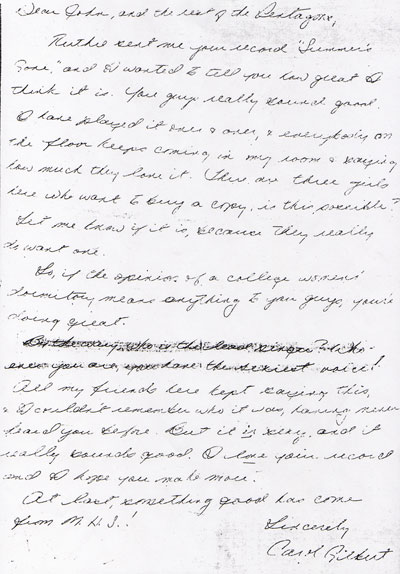 Dear John, and the rest of the Pentagons,
Ruthie sent me your record "Summer's
Gone," and I wanted to tell you how great I
think it is. You guys really sound good.
I have played it over & over, & everybody on
the floor keeps coming in my room & saying
how much they love it. There are three girls
here who want to buy a copy, is this possible?
Let me know if it is, because they really
do want one.
So, if the opinion of a college women's
dormitory means anything to you guys, you're
doing great.
By the way, who is the lead singer? Who-
ever you are, you have the sexiest voice!
All my friends here kept saying this,
& I couldn't remember who it was, having never
heard you before. But it is sexy, and it
really sounds good. I love your record
and I hope you make more.
At last, something good has come
from M.H.S.!
Sincerely
Carol Gilbert